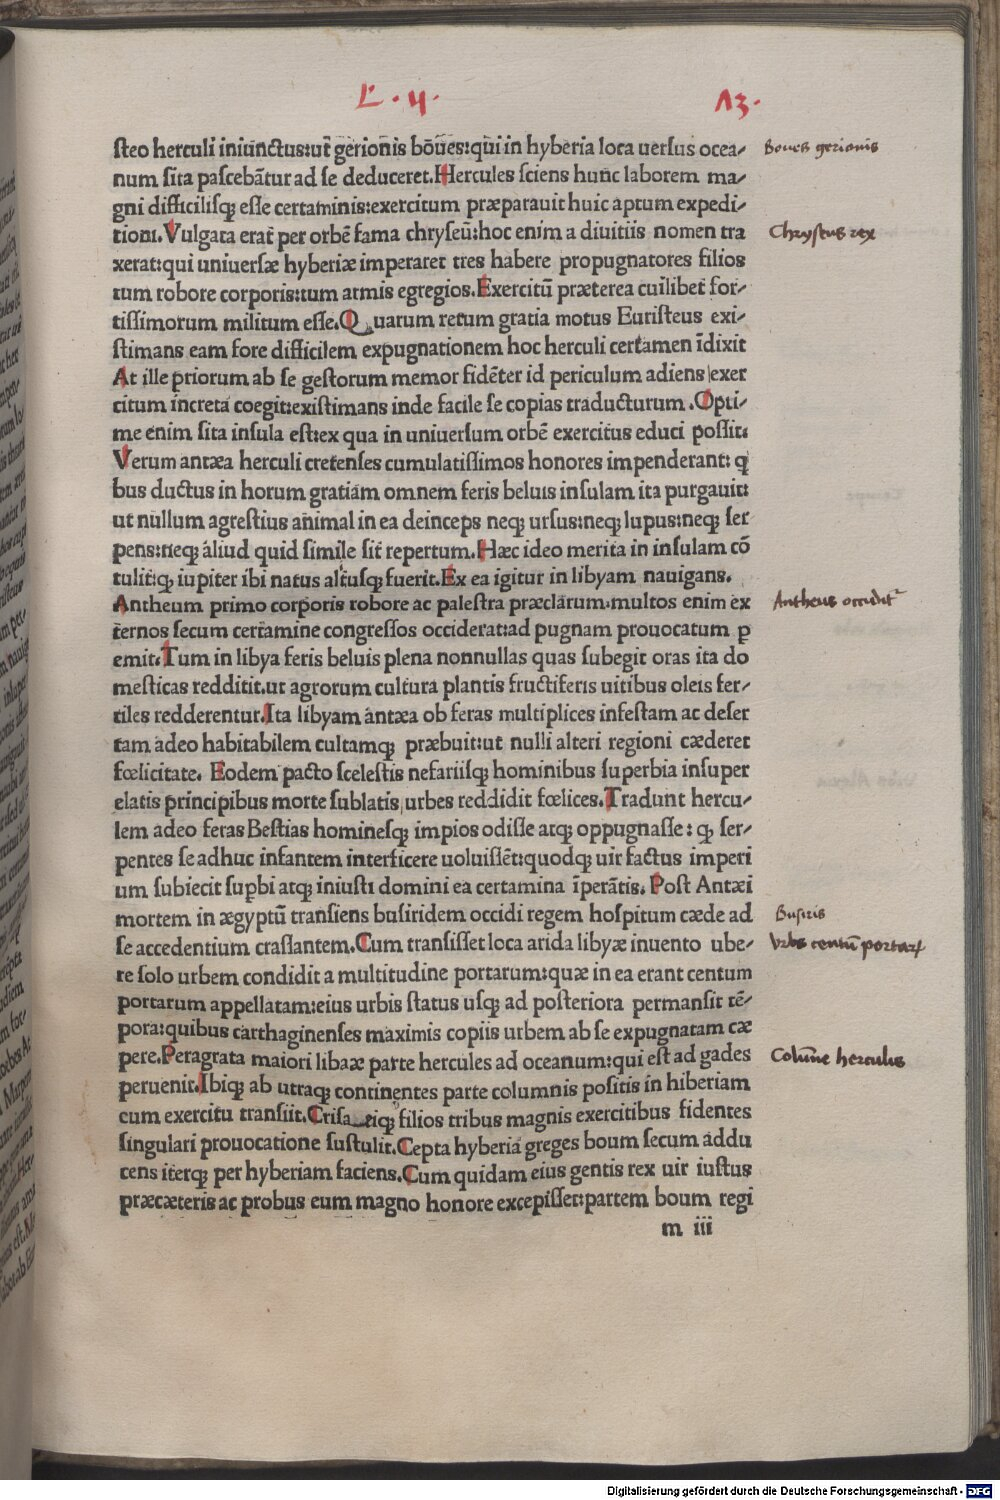 L. 4. 13.
steo herculi iniunctus:ut gerionis boues:qui in hyberia loca uersus ocea/
num sita pascebātur ad se deduceret.Hercules sciens hunc laborem ma/
gni difficilisq; esse certaminis:exercitum præparauit huic aptum expedi/
tioni.Vulgata erat per orbē fama chryseū:hoc enim a diuitiis nomen tra
xerat:qui uniuersæ hyberiæ imperaret tres habere propugnatores filios
tum robore corporis:tum armis egregios.Exercitū præterea cuilibet for/
tissimorum militum esse.Quarum rerum gratia motus Euristeus exi/
stimans eam fore difficilem expugnationem hoc herculi certamen īdixit
At ille priorum ab se gestorum memor fidēter id periculum adiens exer
citum in creta coegit:existimans inde facile se copias traducturum.Opti/
me enim sita insula est:ex qua in uniuersum orbē exercitus educi possit:
Verum antæa herculi cretenses cumulatissimos honores impenderant: q
bus ductus in horum gratiam omnem feris beluis insulam ita purgauit:
ut nullum agrestius animal in ea deinceps neq; ursus:neq; lupus:neq; ser
pens:neq; aliud quid simile sit repertum.Hæc ideo merita in insulam cō
tulit:q; iupiter ibi natus altusq; fuerit.Ex ea igitur in libyam nauigans.
Antheum primo corporis robore ac palestra præclarum.multos enim ex
ternos secum certamine congressos occiderat:ad pugnam prouocatum p
emit.Tum in libya feris beluis plena nonnullas quas subegit oras ita do
mesticas redditit.ut agrorum cultura plantis fructiferis uitibus oleis fer/
tiles redderentur.Ita libyam antæa ob feras multiplices infestam ac deser
tam adeo habitabilem cultamq; præbuit:ut nulli alteri regioni cæderet
fœlicitate. Eodem pacto scelestis nefariisq; hominibus superbia insuper
elatis principibus morte sublatis urbes reddidit fœlices.Tradunt hercu/
lem adeo feras Bestias hominesq; impios odisse atq; oppugnasse: q; ser/
pentes se adhuc infantem interficere uoluissēt:quodq; uir factus imperi
um subiecit supbi atq; iniusti domini ea certamina īperātis. Post Antæi
mortem in ægyptū transiens busiridem occidi regem hospitum cæde ad
se accedentium crassantem.Cum transisset loca arida libyæ inuento ube/
re solo urbem condidit a multitudine portarum:quæ in ea erant centum
portarum appellatam:eius urbis status usq; ad posteriora permansit tē/
pora:quibus carthaginenses maximis copiis urbem ab se expugnatam cæ
pere.Peragrata maiori libaæ parte hercules ad oceanum:qui est ad gades
peruenit.Ibiq; ab utraq; continentes parte columnis positis in hiberiam
cum exercitu transiit.Crisa tiq; filios tribus magnis exercitibus fidentes
singulari prouocatione sustulit.Cepta hyberia greges boum secum addu
cens iterq; per hyberiam faciens.Cum quidam eius gentis rex uir iustus
præcæteris ac probus eum magno honore excepisset:partem boum regi
m iii
Boues gerionis
Chryseus rex
Antheus occidit
Busiris
Vrbs centū portarū
Colūne herculis
Digitalisierung gefördert durch die Deutsche Forschungsgemeinschaft - DFG